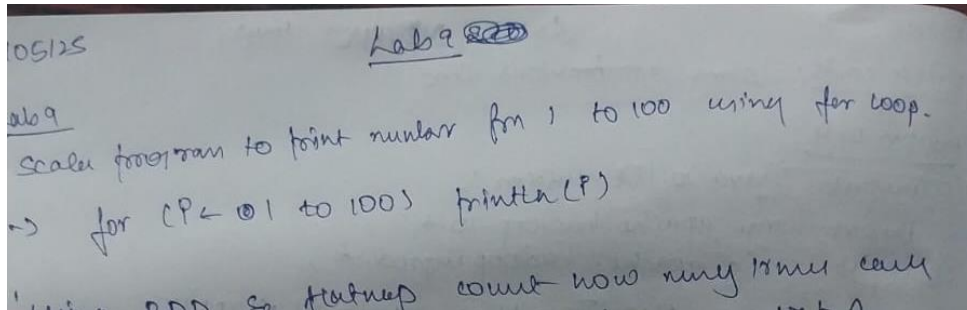 05/25
Lab 9
Lab 9
Scala program to print number from 1 to 100 using for loop.
-> for (i <- 1 to 100) println(i)
RDD & flatmap count how many times each